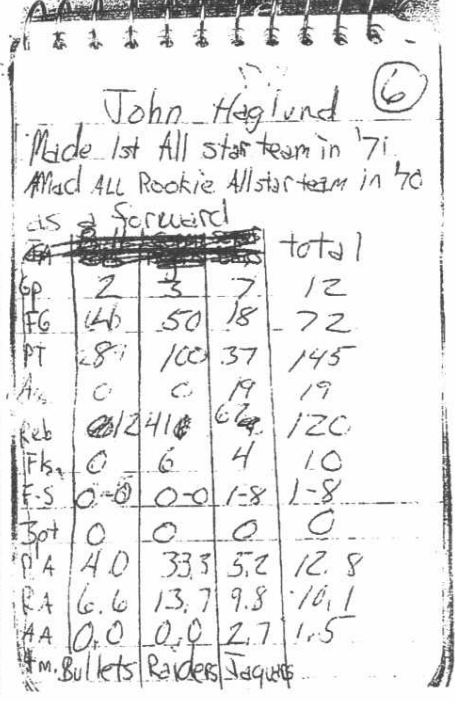 6
John Haglund
Made 1st All star team in '71
Mad ALL Rookie Allstar team in '70
as a forward
total
Gp 2 3 7 12
FG 4 50 18 72
PT 8 100 37 145
A 0 0 19 19
Reb 12 41 120
Fls. 0 6 4 10
F-S 0-0 0-0 1-8 1-8
3pt 0 0 0 0
PA 4.0 33.3 5.2 12.8
RA 6.6 13.7 9.8 10.1
AA 0.0 0.0 2.7 1.5
Tm. Bullets Raiders Jaquars